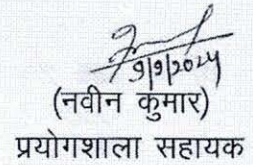 9/9/2024
(नवीन कुमार)
प्रयोगशाला सहायक